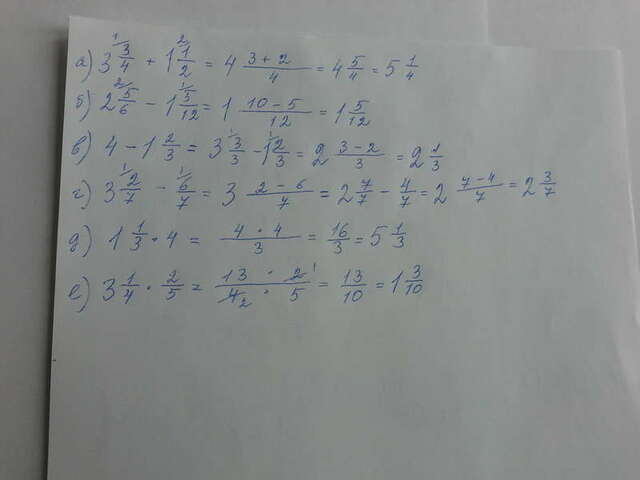 а) 3 3/4 + 1 1/2 = 4 (3 + 2)/4 = 4 5/4 = 5 1/4
б) 2 5/6 - 1 5/12 = 1 (10 - 5)/12 = 1 5/12
в) 4 - 1 2/3 = 3 3/3 - 1 2/3 = 2 (3 - 2)/3 = 2 1/3
г) 3 2/7 - 6/7 = 3 (2 - 6)/7 = 2 7/7 - 4/7 = 2 (7 - 4)/7 = 2 3/7
д) 1 1/3 · 4 = (4 · 4)/3 = 16/3 = 5 1/3
е) 3 1/4 · 2/5 = (13 · 2 1)/(4 2 · 5) = 13/10 = 1 3/10